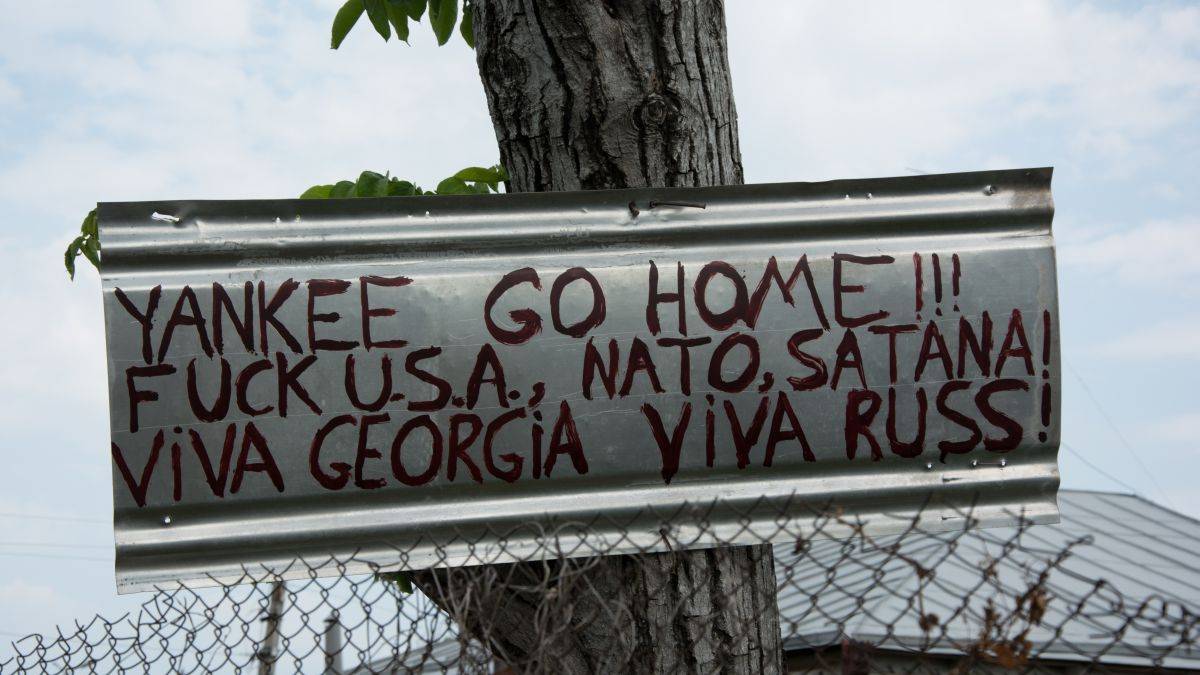 YANKEE GO HOME!!!
FUCK U.S.A., NATO, SATANA!
ViVA GEORGiA ViVA RUSS!